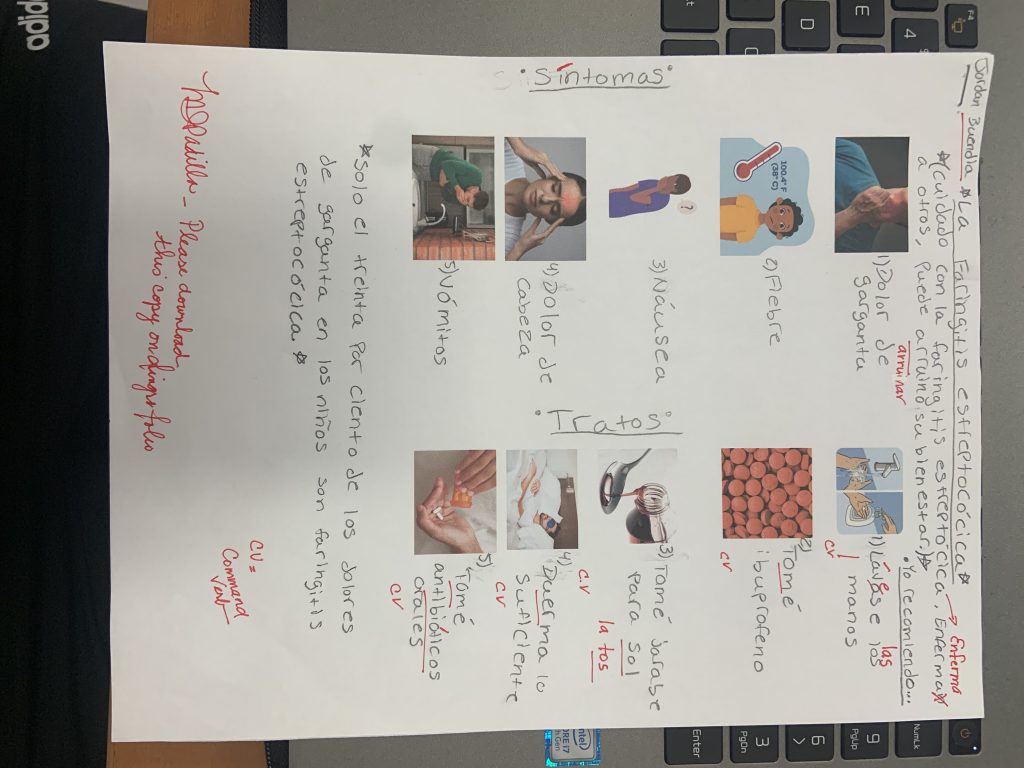 Jordan Buendía
☆La Faringitis estreptocócica☆
☆¡Cuidado con la faringitis estreptócica, Enferma → Enferma
a otros, puede arruinó su bien estar!☆
arruinar
•Síntomas•
1) Dolor de
garganta
2) Fiebre
100.4°F
(38°C)
3) Náusea
?
4) Dolor de
Cabeza
5) Vómitos
•Tratos•
•Yo recomiendo...
1) Lávase los
las
manos
CV
2) Tomé
ibuprofeno
CV
3) Tomé Jarabe
para sol
la tos
CV
4) Duerma lo
suficiente
CV
5) Tomé
antibióticos
orales
CV
☆Solo el treinta por ciento de los dolores
de garganta en los niños son faringitis
estreptocócica☆
Padilla - Please download
this copy on
CV =
Command
Verb
adid
F4
E
D
4
NumLk
9
PgUp
6
>
3
PgDn
Enter
intel
CORE i7